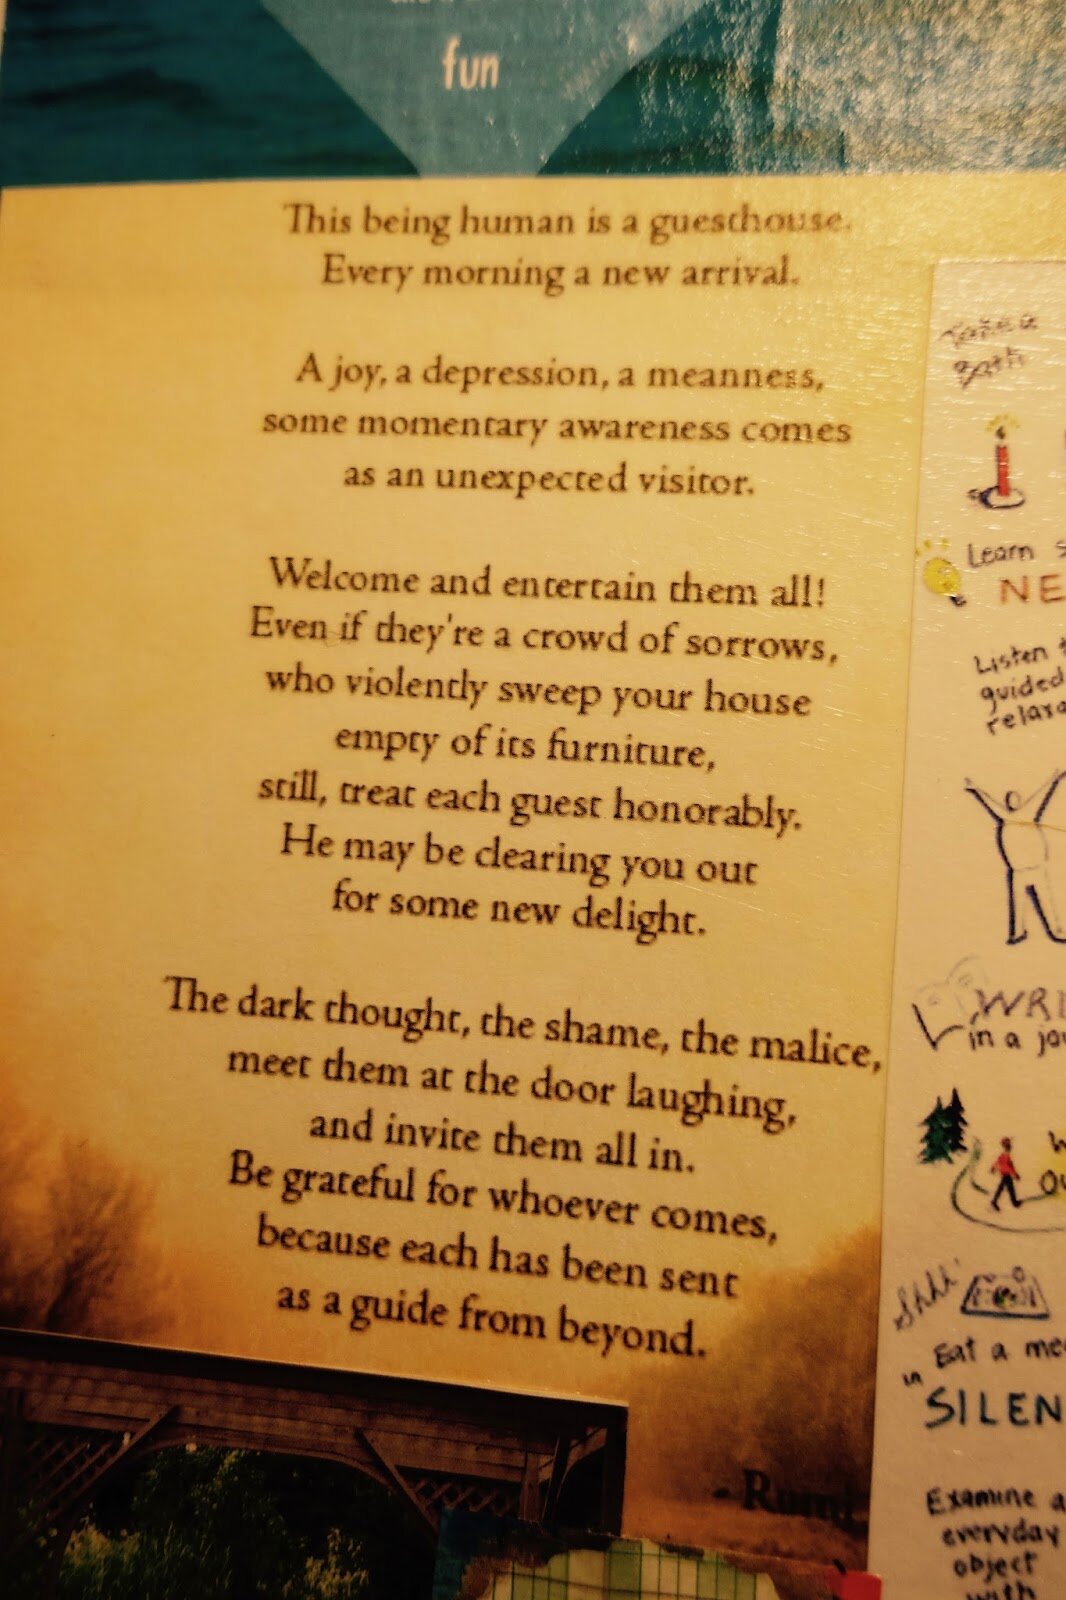 fun
This being human is a guesthouse.
Every morning a new arrival.
A joy, a depression, a meanness,
some momentary awareness comes
as an unexpected visitor.
Welcome and entertain them all!
Even if they're a crowd of sorrows,
who violently sweep your house
empty of its furniture,
still, treat each guest honorably.
He may be clearing you out
for some new delight.
The dark thought, the shame, the malice,
meet them at the door laughing,
and invite them all in.
Be grateful for whoever comes,
because each has been sent
as a guide from beyond.
- Rumi
Take a
Bath
Learn
Listen
guided
in a
Shhh!
Eat a
in
Examine
everyday
object
with